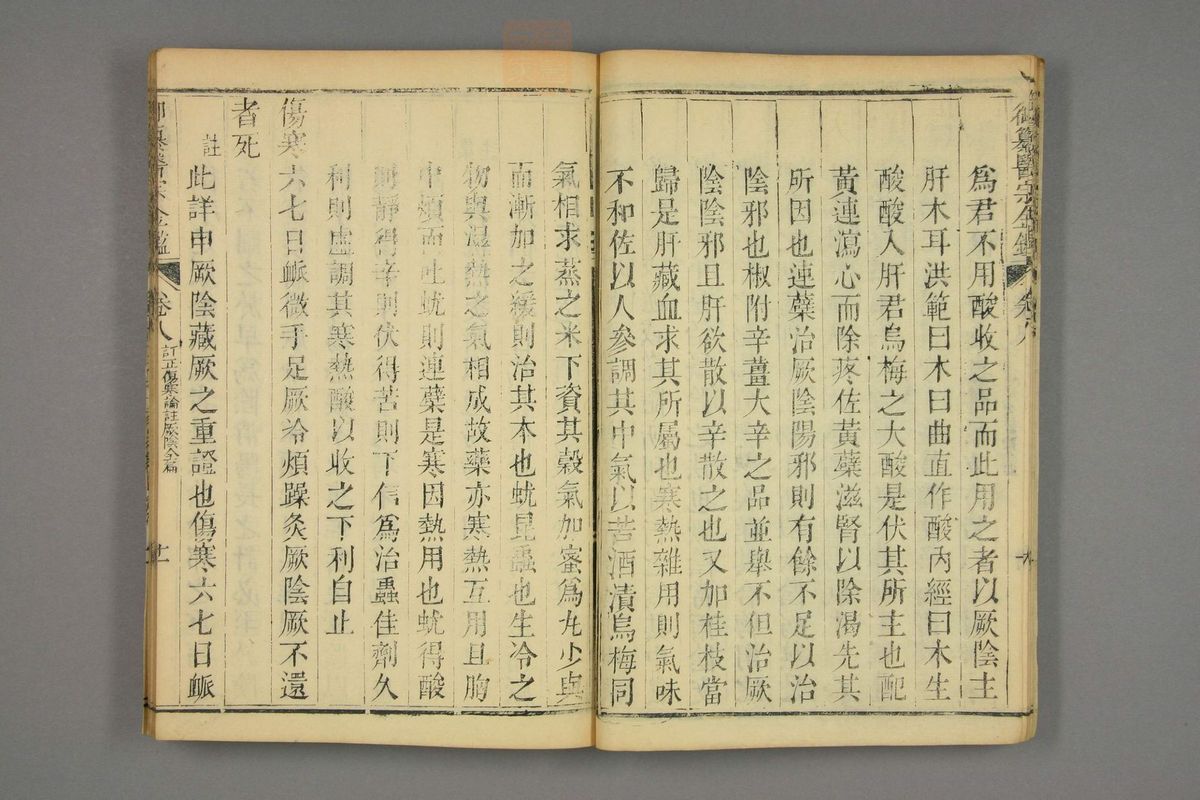 御纂醫宗金鑑 卷八 九
爲君不用酸收之品而此用之者以厥陰主
肝木耳洪範曰木曰曲直作酸內經曰木生
酸酸入肝君烏梅之大酸是伏其所主也配
黃連瀉心而除疼佐黃蘗滋腎以除渴先其
所因也連蘗治厥陰陽邪則有餘不足以治
陰邪也椒附辛薑大辛之品並舉不但治厥
陰陰邪且肝欲散以辛散之也又加桂枝當
歸是肝藏血求其所屬也寒熱雜用則氣味
不和佐以人參調其中氣以苦酒漬烏梅同
氣相求蒸之米下資其穀氣加蜜爲丸少與
而漸加之緩則治其本也蚘昆蟲也生冷之
物與濕熱之氣相成故藥亦寒熱互用且胸
中煩而吐蚘則連蘗是寒因熱用也蚘得酸
則靜得辛則伏得苦則下信爲治蟲佳劑久
利則虛調其寒熱酸以收之下利自止
傷寒六七日脈微手足厥冷煩躁灸厥陰厥不還
者死
註 此詳申厥陰藏厥之重證也傷寒六七日脈
御纂醫宗金鑑 卷八 訂正傷寒論註厥陰全篇 十